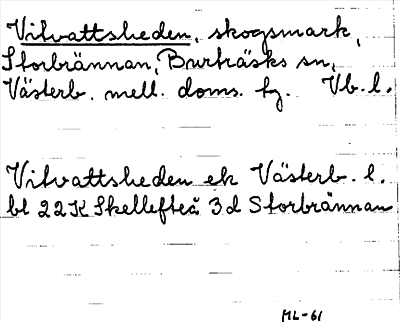 Vitvattsheden, skogsmark,
Storbrännan, Burträsks sn,
Västerb. mell. doms. hg. Vb. l.
Vitvattsheden ek Västerb. l.
bl 22K Skellefteå 3d Storbrännan
ML-61